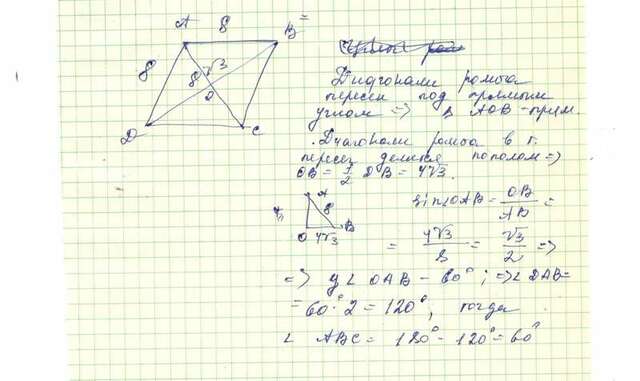 A 8 B
8 8√3
O
D C
Диагонали ромба
пересек под прямым
углом => Δ AOB - прям.
. Диагонали ромба в т.
пересеч делятся пополам =>
OB = 1/2 DB = 4√3.
A
8
O 4√3 B
sin∠OAB = OB/AB =
= 4√3/8 = √3/2 =>
=> ∠ OAB - 60°; => ∠ DAB =
= 60°·2 = 120°, тогда
∠ ABC = 180° - 120° = 60°